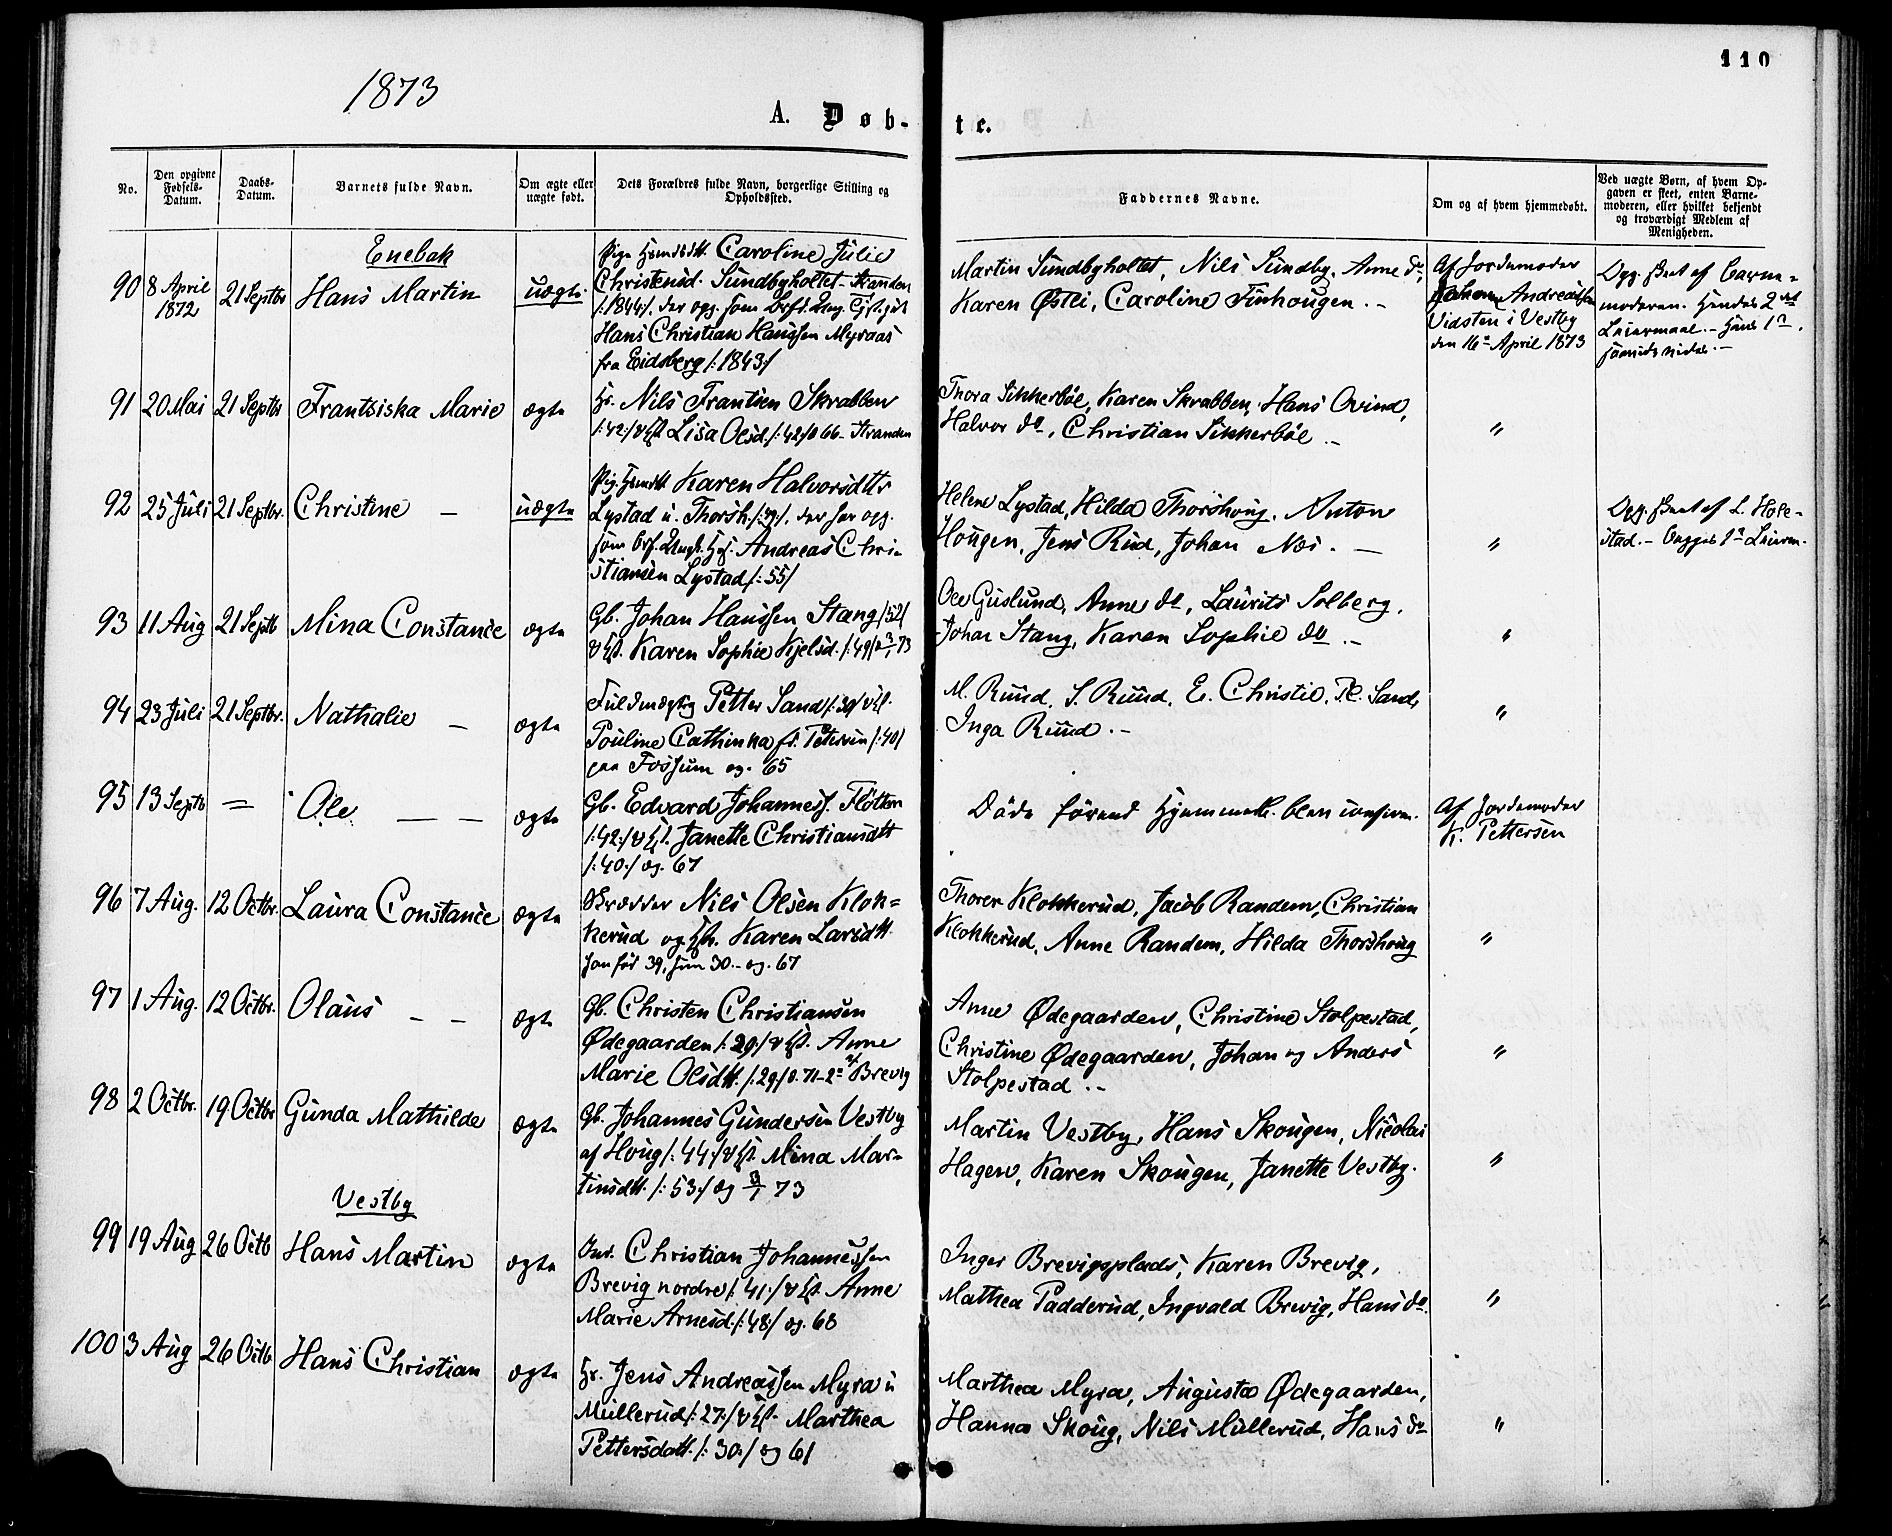 1873
110
A. Døb-
te.
No.
Den opgivne
Fødsels-
Datum.
Daabs-
Datum.
Barnets fulde Navn.
Om ægte eller
uægte født.
Dets Forældres fulde Navn, borgerlige Stilling og
Opholdssted.
Faddernes Navne.
Om og af hvem hjemmedøbt.
Ved uægte Børn, af hvem Op-
gaven er skeet, enten Barne-
moderen, eller hvilket bekjendt
og troværdigt Medlem af
Menigheden.
Enebak
90 8 April 1872 21 Septbr Hans Martin uægte
Pige Caroline Julie
Christensd. Sundbyholtet - Stranden
/:1844:/. der opg. som
Hans Christian Hanssen Myraas
fra Eidsberg /:1843/
Martin Sundbyholtet, Nils Sundby, Anne do,
Karen Østli, Caroline Finhougen. -
Af Jordemoder
Andreassen
Vidsten i Vestby
den 16de April 1873
Opg. skeet af Barne-
moderen. Hendes 2det
Leiermaal. - Hans 1ste.
91 20 Mai 21 Septbr Frantsiska Marie ægte
Hr. Nils Frantsen Skrabben
/:42:/ & H. Lisa Olsd. /:42/ 66 - Stranden
Thora Sikkerbøl, Karen Skrabben, Hans Ovind,
Halvor do, Christian Sikkerbøl. -
"
92 25 Juli 21 Septbr. Christine - uægte
Karen Halvorsdttr
Lystad u. Thorsh. der har opg.
som Andreas Chri-
stiansen Lystad /:55/
Helene Lystad, Hilda Thorshoug, Anton
Hougen, Jens Rud, Johan Næs. -
"
Opg. skeet af L. Hole-
stad. - Begges 1ste Leierm.
93 11 Aug 21 Septb Mina Constance ægte
Gb. Johan Hanssen Stang /52/
& H. Karen Sophie Kjelsd. /:49/ 73
Ole Guslund, Anne do, Laurits Solberg,
Johan Stang, Karen Sophie do. -
"
94 23 Juli 21 Septbr. Nathalie - ægte
Fuldmægtig Petter Sand /:39/ & H.
Pouline Cathinka f. Petersen /:40/
paa Fossum æg. 65
M. Ruud, S. Ruud, E. Christie, P. Sand,
Inga Ruud. -
"
95 13 Septb = Ole - - ægte
Gb. Edvard Johanness. Fløtten
/:42:/ & H. Janette Christiansdtt
/:40:/ æg. 67
Døde førend Hjemmed. blev
Af Jordemoder
K. Pettersen
96 7 Aug. 12 Octbr. Laura Constance ægte
Skrædder Nils Olsen Klok=
kerud og H. Karen Larsdtt.
han før 39, hun 30. - æg. 67
Thorer Klokkerud, Jacob Randem, Christian
Klokkerud, Anne Randem, Hilda Thorshoug
"
97 1 Aug. 12 Octbr. Olaus - - ægte
Gb. Christen Christiansen
Ødegaarden /:29:/ & H. Anne
Marie Olsdtt. /:29/ 71 - Brevig
Anne Ødegaarden, Christine Stolpestad,
Christine Ødegaarden, Johan og Anders
Stolpestad. -
"
98 2 Octbr. 19 Octbr Gunda Mathilde ægte
Gb. Johannes Gundersen Vestby
af Houg /:44:/ & H. Mina Mar-
tinsdtt. /:53:/ æg 73
Martin Vestby, Hans Skougen, Nicolai
Hagen, Karen Skougen, Janette Vestby.
"
Vestby
99 19 Aug 26 Octb Hans Martin ægte
Christian Johannessen
Brevig nordre /:41:/ & H. Anne
Marie Arnesd. /:48:/ æg. 68
Inger Brevigsplads, Karen Brevig,
Mathea Padderud, Ingvald Brevig, Hans do.
"
100 3 Aug 26 Octb Hans Christian ægte
Hr. Jens Andreassen Myra u
Müllerud /:27:/ & H. Marthea
Pettersdatt. /:30:/ æg 61
Marthea Myra, Augusta Ødegaarden,
Hanna Skoug, Nils Müllerud, Hans do
"